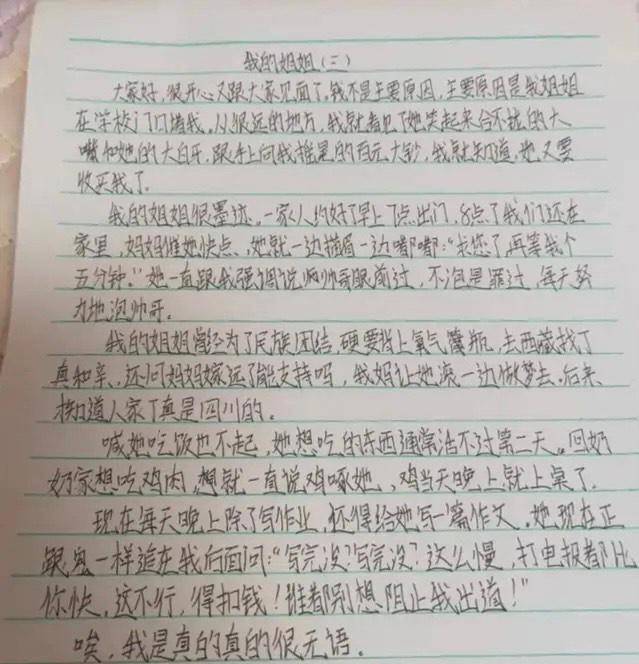 我的姐姐(二)
大家好,很开心又跟大家见面了,钱不是主要原因,主要原因是我姐姐
在学校门口堵我,从很远的地方,我就看见了她笑起来合不拢的大
嘴和她的大白牙,跟手上向我摇晃的百元大钞,我就知道,她又要
收买我了。
我的姐姐很墨迹,一家人约好了早上7点出门,8点了我们还在
家里,妈妈催她快点,她就一边描眉一边嘟嘟:“求您了,再等我个
五分钟。”她一直跟我强调说帅哥眼前过,不泡是罪过,每天努
力地泡帅哥。
我的姐姐曾经为了民族团结,硬要背上氧气罐瓶,去西藏找丁
真和亲,还问妈妈嫁远了能支持吗,我妈让她滚一边做梦去。后来
才知道人家丁真是四川的。
喊她吃饭也不起,她想吃的东西通常活不过第二天。回奶
奶家想吃鸡肉,想就一直说鸡啄她,鸡当天晚上就上桌了。
现在每天晚上除了写作业,还得给她写一篇作文。她现在正
跟鬼一样追在我后面问:“写完没?写完没?这么慢,打电报都比
你快,这不行,得扣钱!谁都别想阻止我出道!”
唉,我是真的真的很无语。